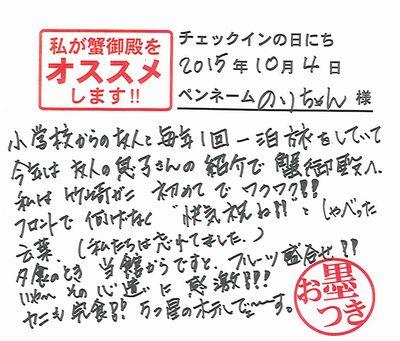 私が蟹御殿を
オススメ
します!!
チェックインの日にち
2015年10月4日
ペンネーム のりちゃん 様
小学校からの友人と毎年1回一泊旅をしていて
今年は友人の息子さんの紹介で蟹御殿へ。
私は竹崎ガニ初めてでワクワク?!!
フロントで何げなく"快気祝ね!!"としゃべった
言葉。(私たちは忘れてました。)
夕食のとき当館からですと、フルーツ盛合せ!!
いゃ〜その心遣に感激!!!
カニも完食!! 五つ星のホテルで〜〜す。
お墨つき